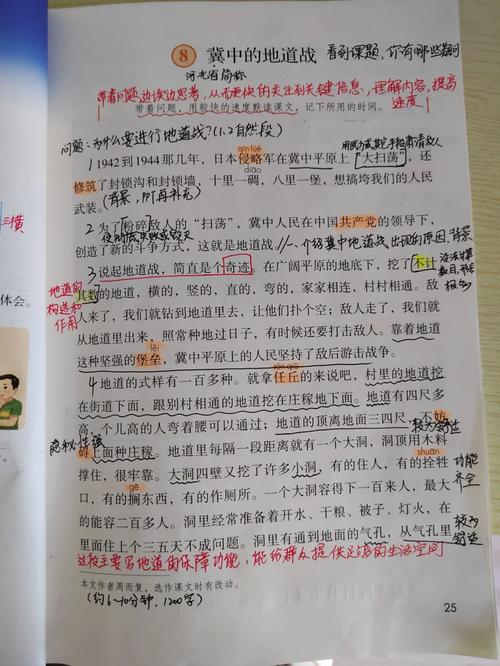 8 冀中的地道战 看到课题,你有哪些疑问
河北省简称
带着问题边读边思考,从而更快的关注到关键信息,理解内容,提高速度
带着问题,用较快的速度默读课文,记下所用的时间。
问题:为什么要进行地道战?(1.2自然段)
qīn lüè
1 1942到1944那几年,日本侵略军在冀中平原上“大扫荡”,还
diāo
修筑了封锁沟和封锁墙,十里一碉,八里一堡,想搞垮我们的人民
武装。(背景,可再补充)
2 为了粉碎敌人的“扫荡”,冀中人民在中国共产党的领导下,
创造了新的斗争方式,这就是地道战。 介绍冀中地道战出现的原因、背景
3 说起地道战,简直是个奇迹。在广阔平原的地底下,挖了不计
地道的构造和作用
其数的地道,横的,竖的,直的,弯的,家家相连,村村相通。敌
人来了,我们就钻到地道里去,让他们扑个空;敌人走了,我们就
从地道里出来,照常种地过日子,有时候还要打击敌人。靠着地道
lěi
这种坚强的堡垒,冀中平原上的人民坚持了敌后游击战争。
4 地道的式样有一百多种。就拿任丘的来说吧,村里的地道挖
在街道下面,跟别村相通的地道挖在庄稼地下面。地道有四尺多
高,个儿高的人弯着腰可以通过;地道的顶离地面三四尺,不妨
碍上面种庄稼。地道里每隔一段距离就有一个大洞,洞顶用木料
shuān
撑住,很牢靠。大洞四壁又挖了许多小洞,有的住人,有的拴牲
功能齐全
gē
口,有的搁东西,有的作厕所。一个大洞容得下一百来人,最大
的能容二百多人。洞里经常准备着开水、干粮、被子、灯火,在
里面住上个三五天不成问题。洞里有通到地面的气孔,从气孔里
这段主要写地道的保障功能,能给群众提供足够的生活空间
本文作者周而复,选作课文时有改动。
(约6~10分钟,1200字)
25
三横
体会。